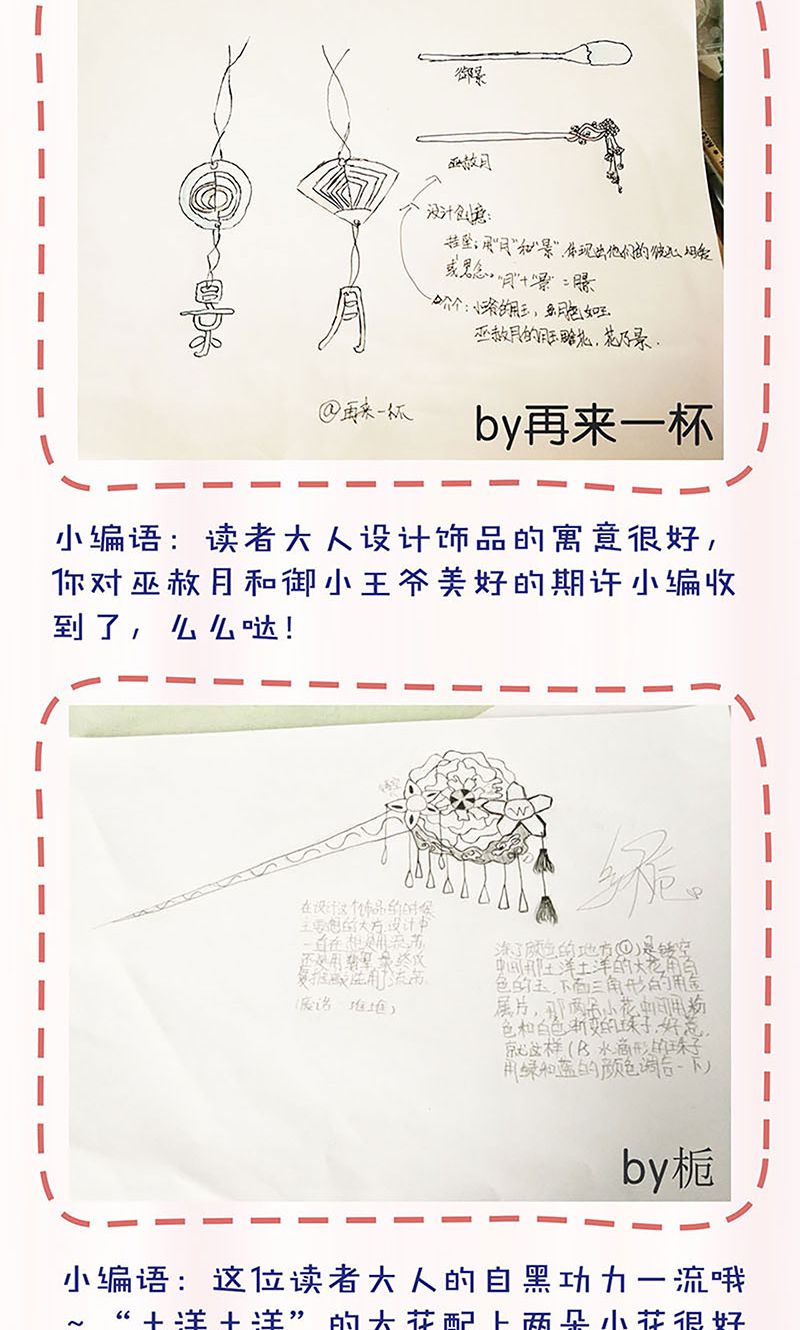 御景
巫赦月
设计创意:
挂坠:用"月"和"景"体现出他们的彼此相知
或思念。"月"+"景"=朤
景
月
巫赦月的用玉略花,花乃景.
@再来一杯
by再来一杯
小编语:读者大人设计饰品的寓意很好,
你对巫赦月和御小王爷美好的期许小编收
到了,么么哒!
镂空
W
在设计这个饰品的时候
一直在想是用流苏
还是用翡翠最终
(废话一堆堆)
涂了颜色的地方(①)是镂空
中间那土洋土洋的大花用白
色的玉、下面三角形的用金
属片,那两朵小花中间用粉
色和白色渐变的珠子,好惹,
就这样(Ps水滴形的珠子
用绿和蓝的颜色调合一下)
by栀
小编语:这位读者大人的自黑功力一流哦
~"土洋土洋"的大花配上两朵小花很好